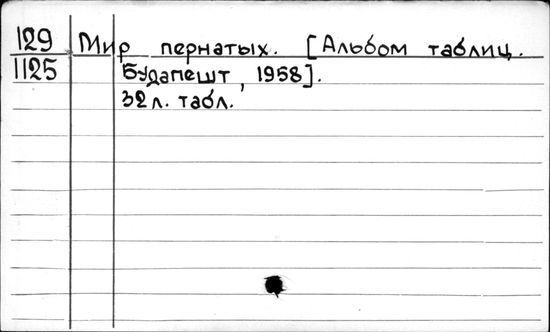 129 Мир пернатых. [Альбом таблиц.
1125 Будапешт, 1958].
32 л. табл.